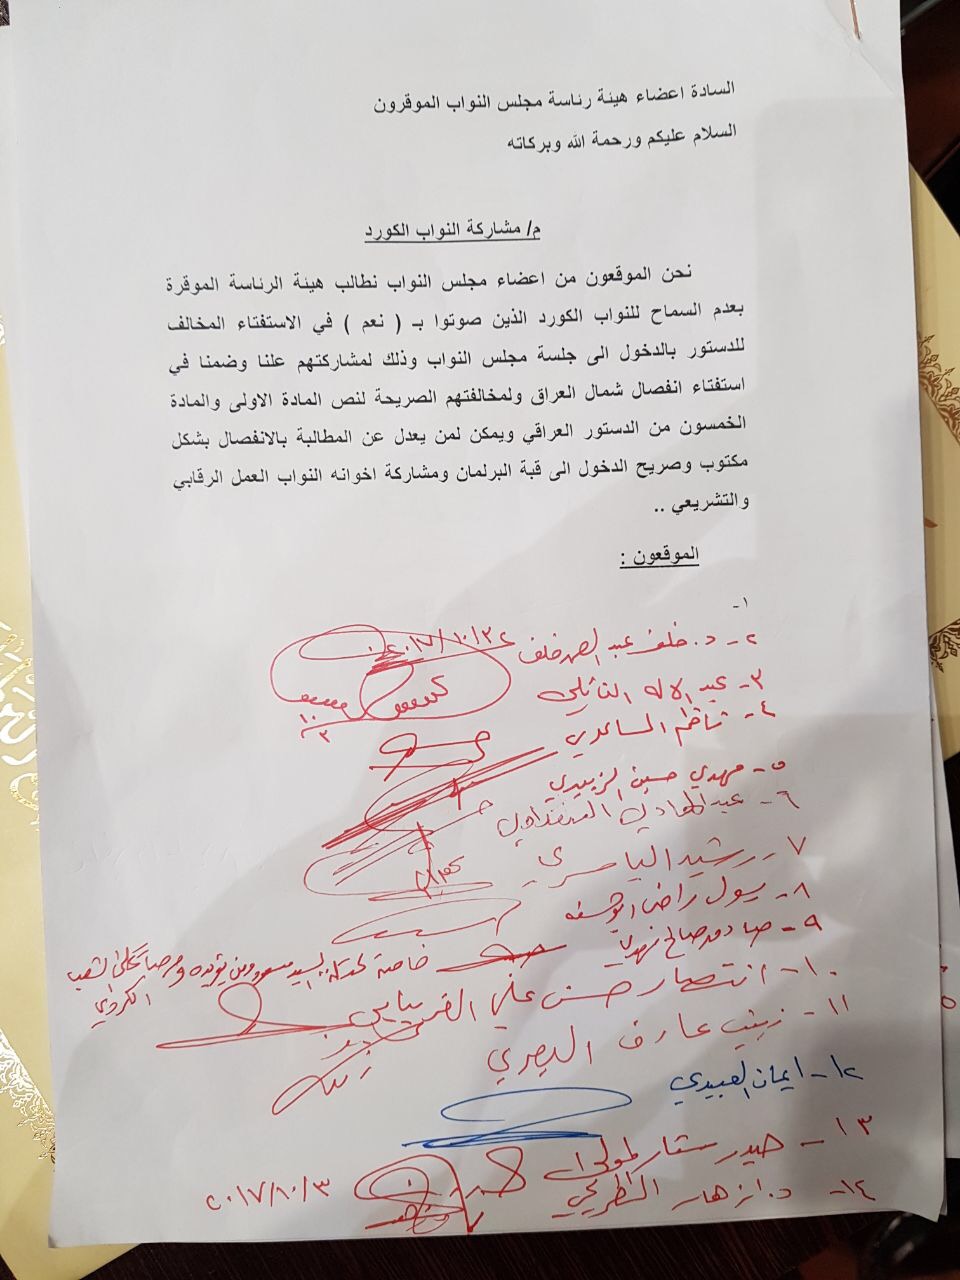 السادة اعضاء هيئة رئاسة مجلس النواب الموقرون
السلام عليكم ورحمة الله وبركاته
م/ مشاركة النواب الكورد
نحن الموقعون من اعضاء مجلس النواب نطالب هيئة الرئاسة الموقرة
بعدم السماح للنواب الكورد الذين صوتوا بـ ( نعم ) في الاستفتاء المخالف
للدستور بالدخول الى جلسة مجلس النواب وذلك لمشاركتهم علنا وضمنا في
استفتاء انفصال شمال العراق ولمخالفتهم الصريحة لنص المادة الاولى والمادة
الخمسون من الدستور العراقي ويمكن لمن يعدل عن المطالبة بالانفصال بشكل
مكتوب وصريح الدخول الى قبة البرلمان ومشاركة اخوانه النواب العمل الرقابي
والتشريعي ..
الموقعون :
١-
٢- د. خلف عبد الصمد خلف ٢٠١٧/١٠/٣
٣- عبد الاله النائلي
٤- كاظم الساعدي
٥- مهدي حسين الزبيدي
٦- عبد الهادي
٧- رشيد الياسري
٨- رسول راضي ابو حسنه
٩- خاصة لكتلة السيد مسعود ومن يؤيده الشعب
الكردي
١٠- انتصار حسن علي
١١- زينب عارف البصري
١٢- ايمان العبيدي
١٣- حيدر ستار المولى
١٤- د. ازهار الطريحي ٢٠١٧/١٠/٣